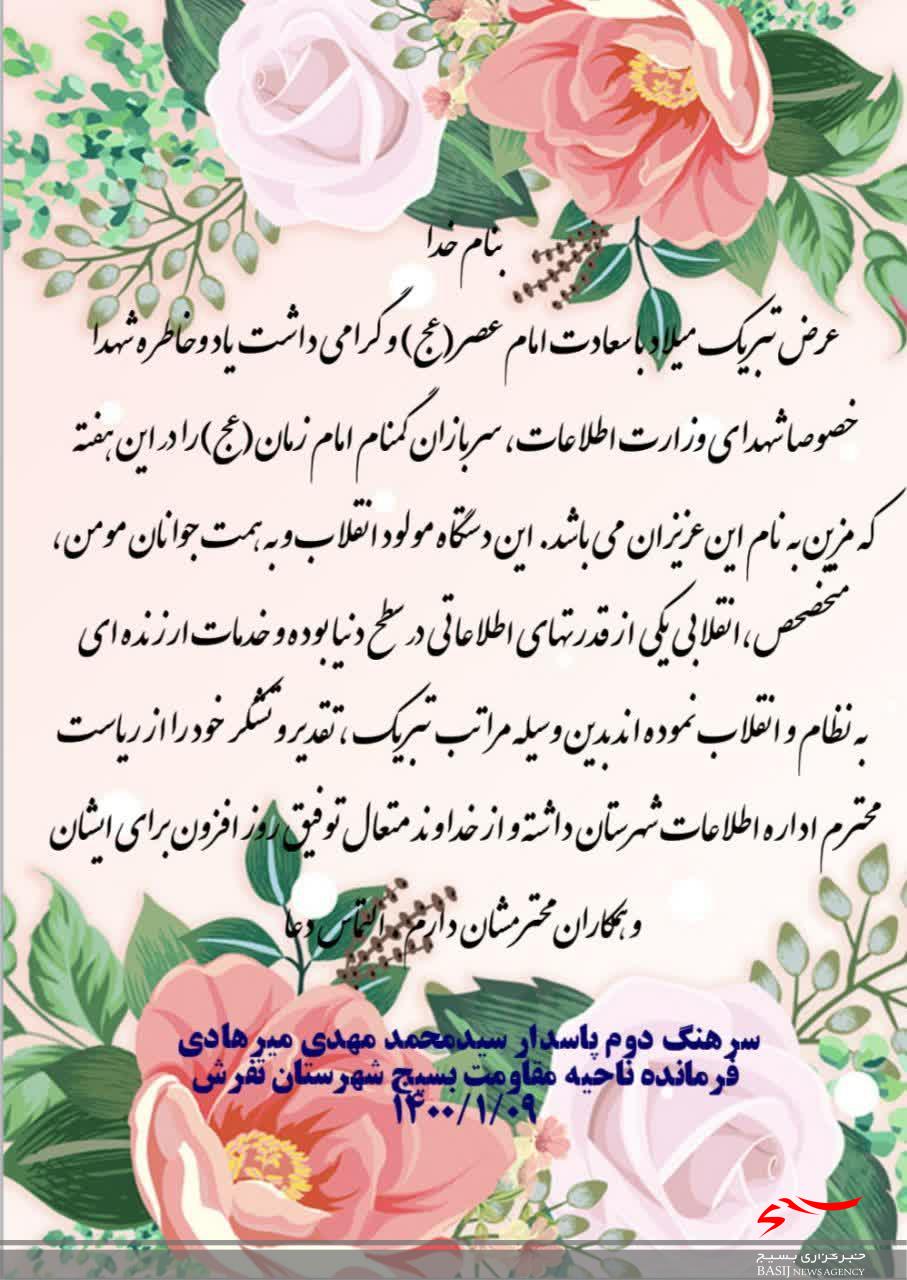 بنام خدا
عرض تبریک میلاد باسعادت امام عصر(عج) و گرامی داشت یاد و خاطره شهدا
خصوصا شهدای وزارت اطلاعات، سربازان گمنام امام زمان (عج) را در این هفته
که مزین به نام این عزیزان می باشد. این دستگاه مولود انقلاب و به همت جوانان مومن،
متخصص، انقلابی یکی از قدرتهای اطلاعاتی در سطح دنیا بوده و خدمات ارزنده ای
به نظام و انقلاب نموده اند بدین وسیله مراتب تبریک، تقدیر و تشکر خود را از ریاست
محترم اداره اطلاعات شهرستان داشته و از خداوند متعال توفیق روز افزون برای ایشان
و همکاران محترمشان دارم. التماس دعا
سرهنگ دوم پاسدار سیدمحمد مهدی میرهادی
فرمانده ناحیه مقاومت بسیج شهرستان تفرش
۱۴۰۰/۱/۰۹
خبرگزاری بسیج
BASIJ NEWS AGENCY